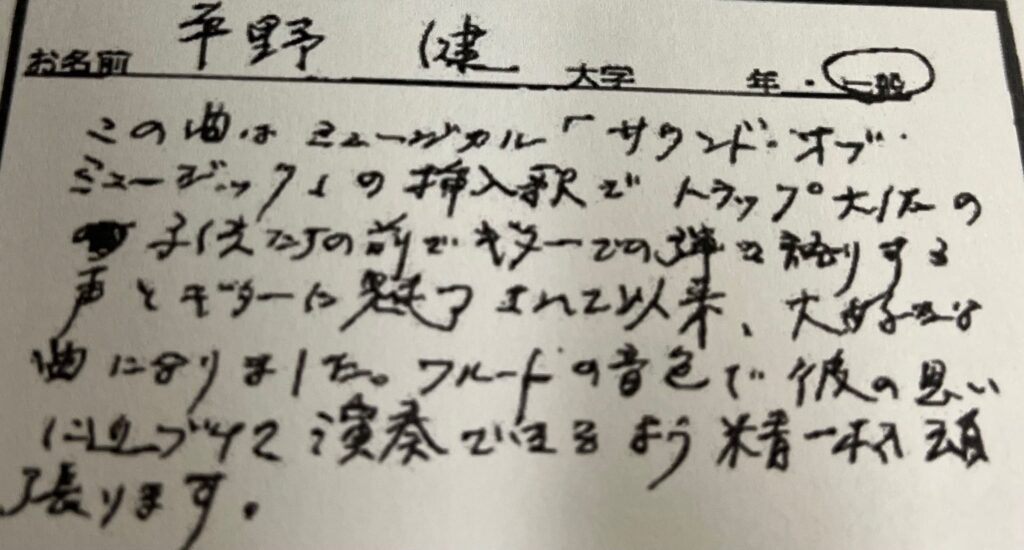 お名前 平野 健 大学 年・一般
この曲はミュージカル「サウンド・オブ・
ミュージック」の挿入歌でトラップ大佐の
子供たちの前でギターでの弾き語りする
声とギターに魅了されて以来、大好きな
曲になりました。フルートの音色で彼の思い
に近づけて演奏できるよう精一杯頑
張ります。